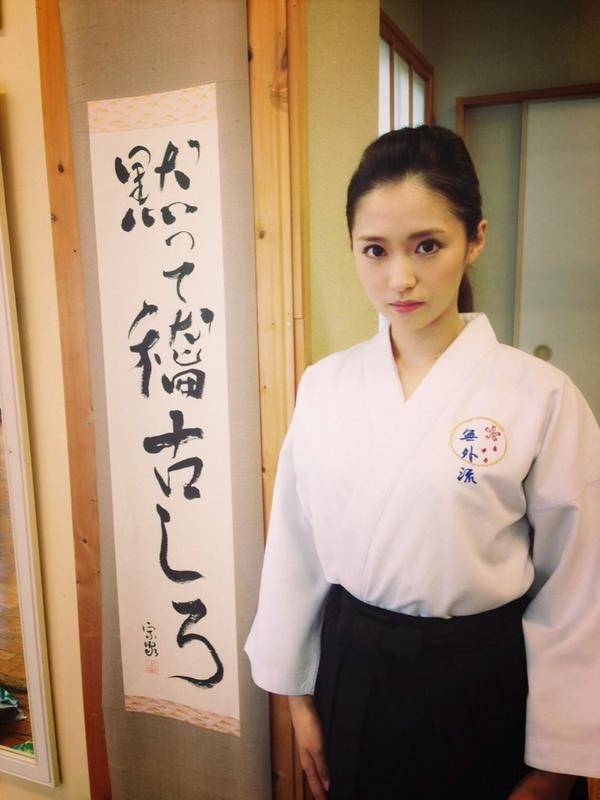 黙って稽古しろ
宗家
無外流